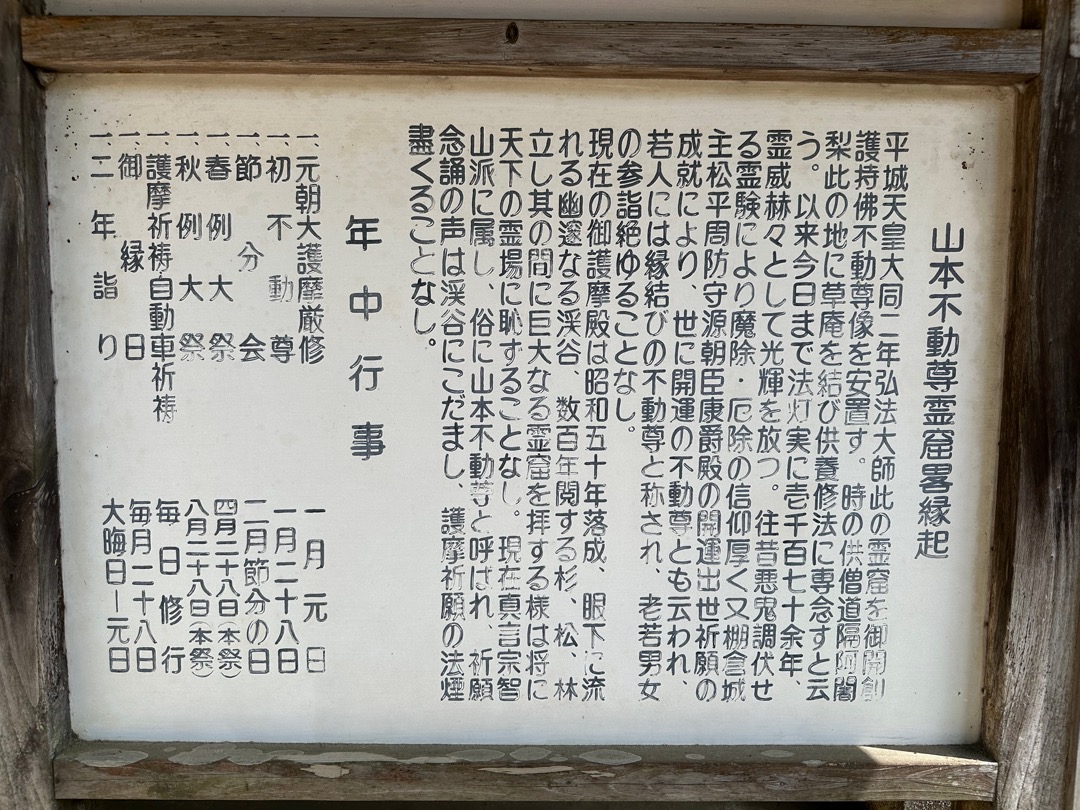 山本不動尊霊窟畧縁起
平城天皇大同二年弘法大師此の霊窟を御開創
護持佛不動尊像を安置す。時の供僧道隔阿闍
梨此の地に草庵を結び供養修法に専念すと云
う。以来今日まで法灯実に壱千百七十余年、
霊威赫々として光輝を放つ。往昔悪鬼調伏せ
る霊験により魔除・厄除の信仰厚く又棚倉城
主松平周防守源朝臣康爵殿の開運出世祈願の
成就により、世に開運の不動尊とも云われ、
若人には縁結びの不動尊と称され、老若男女
の参詣絶ゆることなし。
現在の御護摩殿は昭和五十年落成、眼下に流
れる幽邃なる渓谷、数百年閲する杉、松、林
立し其の間に巨大なる霊窟を拝する様は将に
天下の霊場に恥ずることなし。現在真言宗智
山派に属し、俗に山本不動尊と呼ばれ、祈願
念誦の声は渓谷にこだまし、護摩祈願の法煙
盡くることなし。
年中行事
一、元朝大護摩厳修 一月元日
一、初不動尊 一月二十八日
一、節分会 二月節分の日
一、春例大祭 四月二十八日(本祭)
一、秋例大祭 八月二十八日(本祭)
一、護摩祈祷自動車祈祷 毎日修行
一、御縁日 毎月二十八日
一、二年詣り 大晦日ー元日